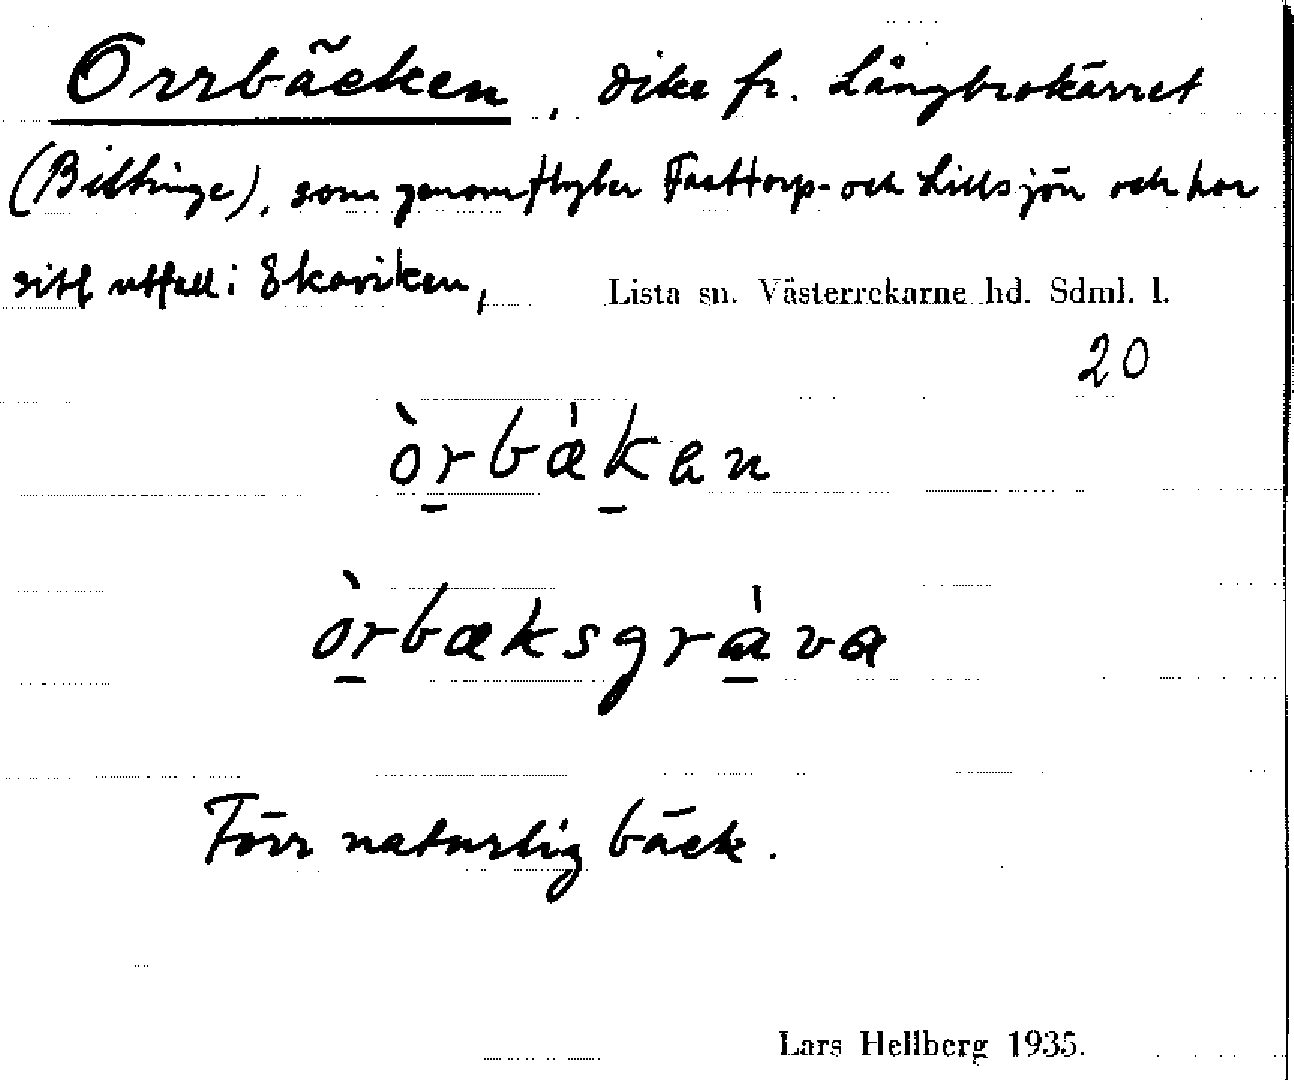 Orrbäcken, dike fr. Långbrokärret
(Biltinge), som genomflyter Fasttorp- och Lillsjön och har
sitt utfall i Ekaviken, Lista sn. Västerrekarne hd. Sdml. l.
20
òrbǽkan
òrbæksgráva
Förr naturlig bäck.
Lars Hellberg 1935.